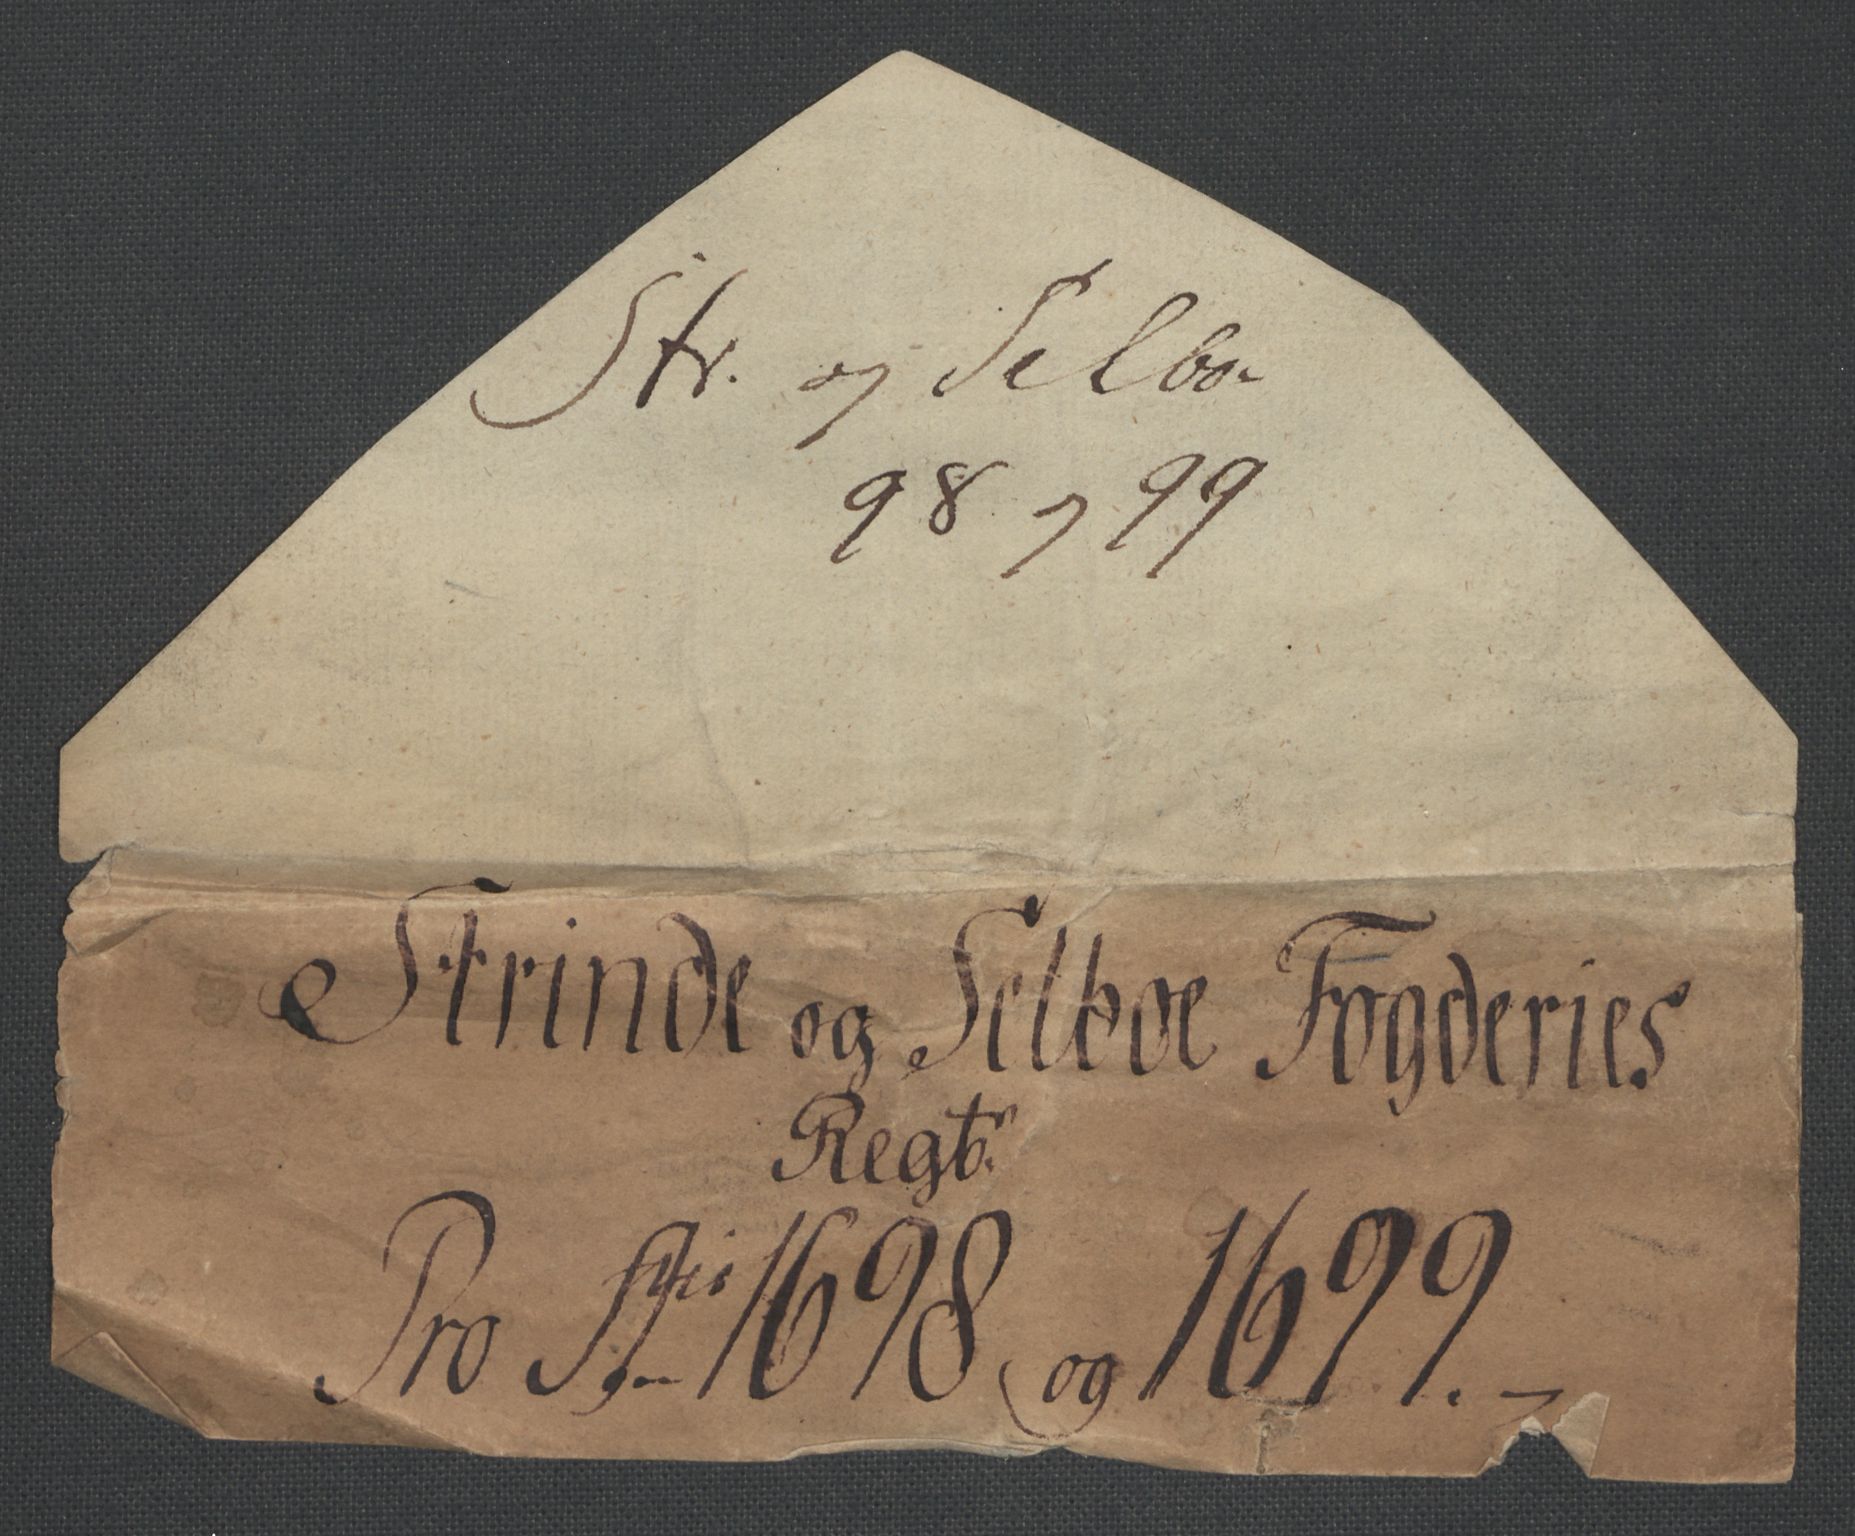 Str. og Selbo.
98 og 99
Strinde og Selboe Fogderies
Regtr.
Pro 1698 og 1699.